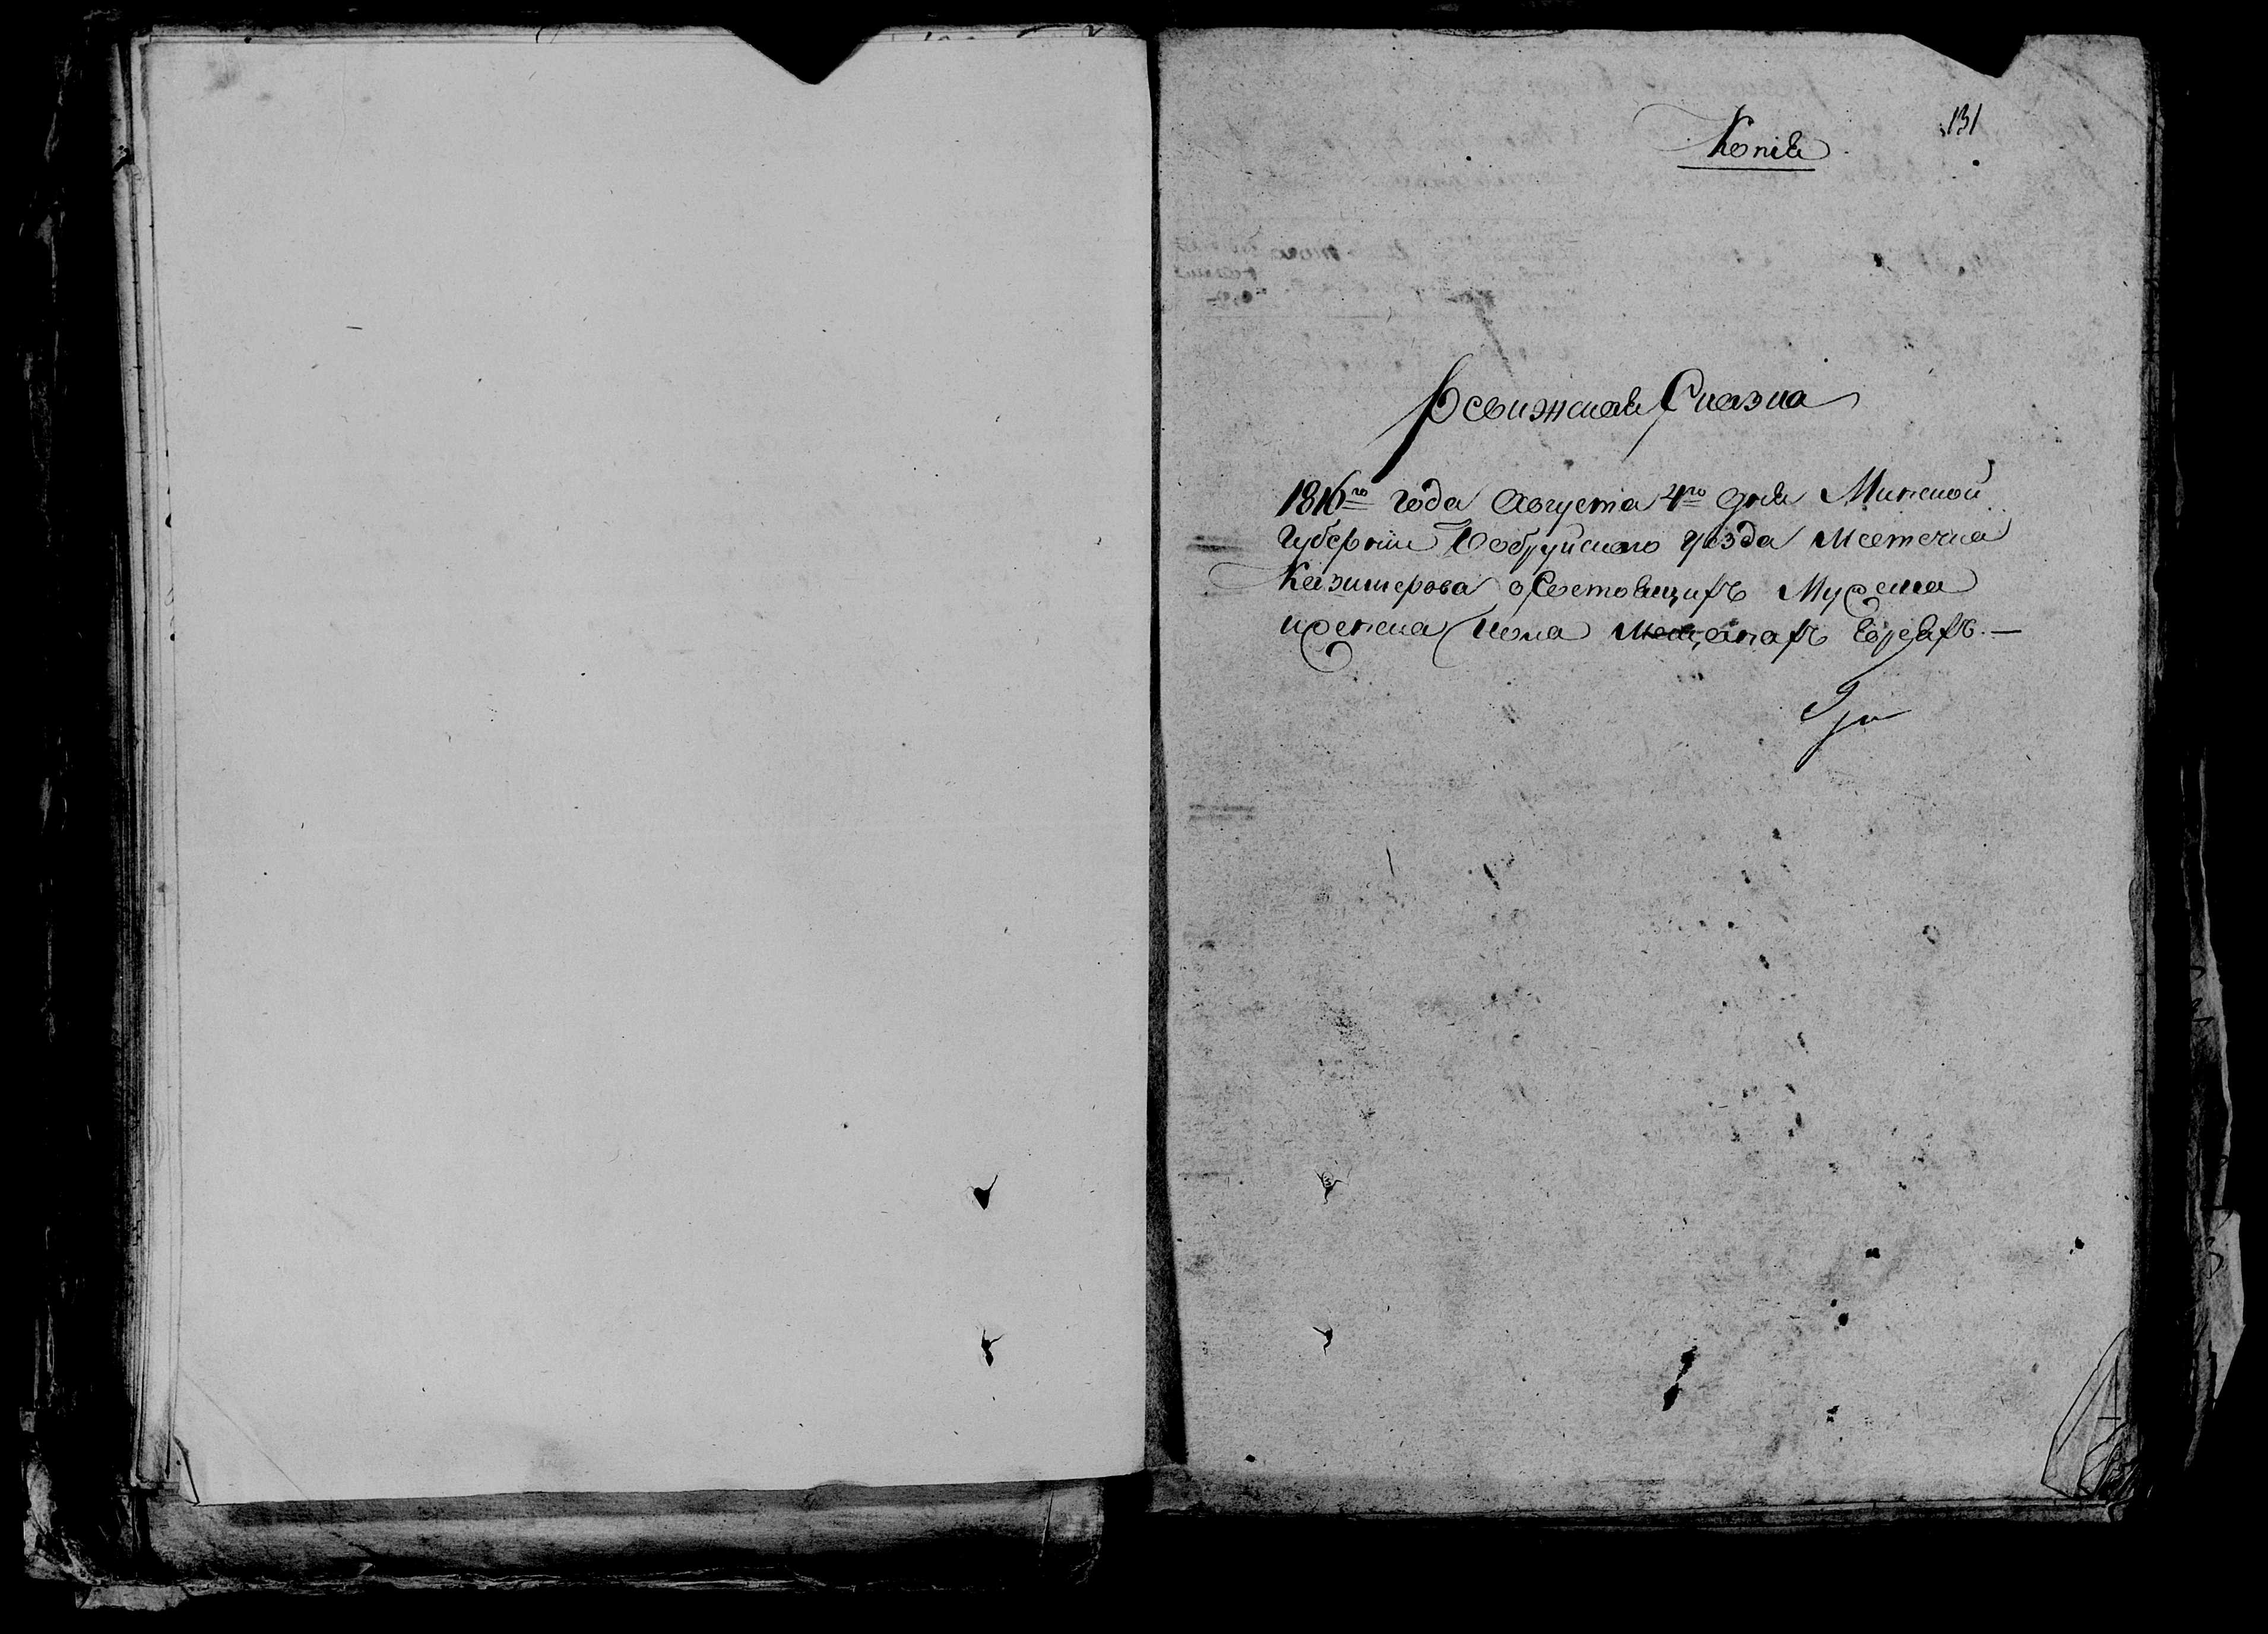 131
Копія
Ревижская Сказка
1816го года Августа 4го дня Минской
Губернiи Бобруйскаго уезда местечка
Казимерова о состоящихъ Мужеска
и женска пола мещанахъ Евреяхъ. —